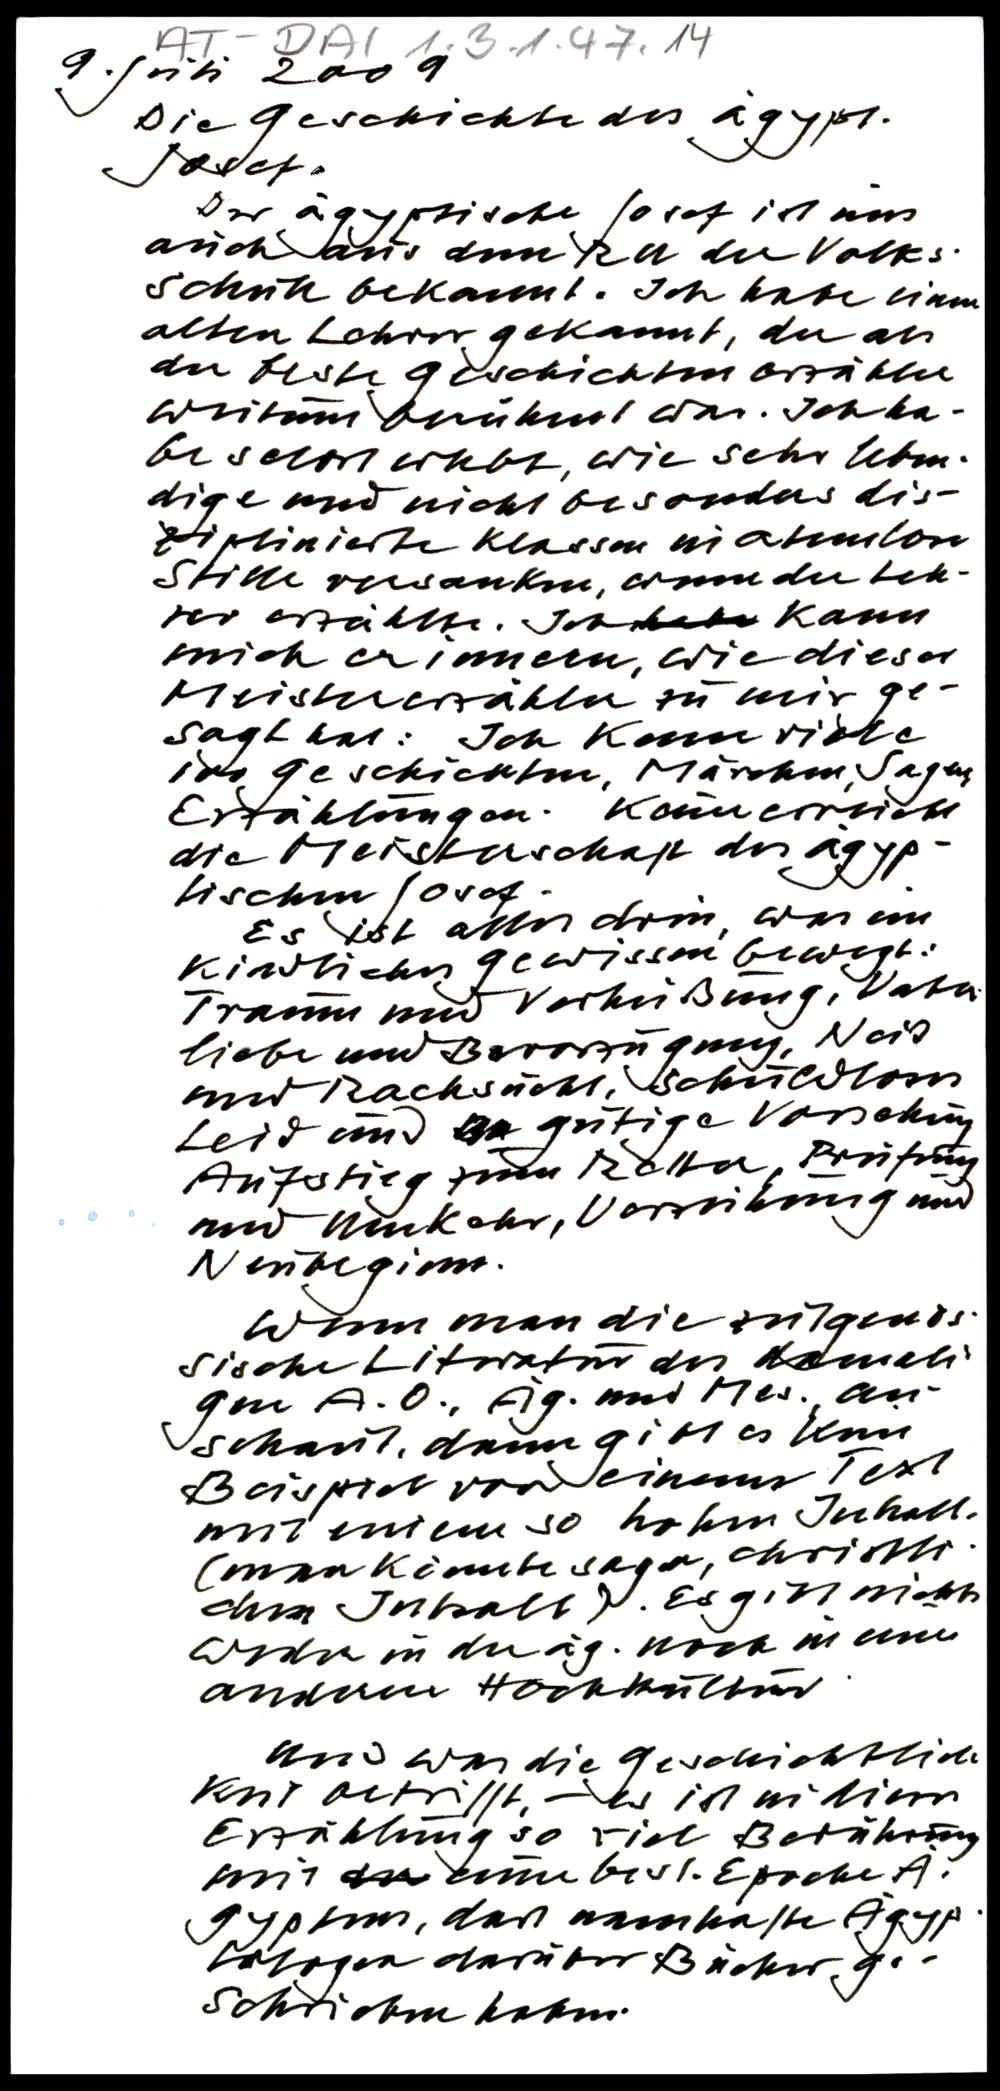 AT-DAI 1.3.1.47.14
9. Juli 2009
Die Geschichte des ägypt.
Josef.
Der ägyptische Josef ist uns
auch aus dem RU der Volks-
schule bekannt. Ich habe einen
alten Lehrer gekannt, der als
der beste Geschichtenerzähler
weitum berühmt war. Ich ha-
be selbst erlebt, wie sehr leben-
dige und nicht besonders dis-
ziplinierte Klassen in atemlose
Stille versanken, wenn der Leh-
rer erzählte. Ich habe kann
mich erinnern, wie dieser
Meistererzähler zu mir ge-
sagt hat: Ich kenne viele
Geschichten, Märchen, Sagen,
Erzählungen. Keine erreicht
die Meisterschaft des ägyp-
tischen Josef.
Es ist alles drin, was ein
kindliches Gewissen bewegt:
Traum und Verheißung, Vater-
liebe und Bevorzugung, Neid
und Rachsucht, schuldloses
Leid und gütige Vorsehung
Aufstieg zum Retter, Prüfung
und Umkehr, Verzeihung und
Neubeginn.
Wenn man die zeitgenös-
sische Literatur des damali-
gen A.O., Äg. und Mes. an-
schaut, dann gibt es kein
Beispiel von einem Text
mit einem so hohen Inhalt.
(man könnte sagen, christli-
chen Inhalt). Es gibt nichts
weder in der äg. noch in einer
anderen Hochkultur
Und was die Geschichtlich-
keit betrifft, – es ist in dieser
Erzählung so viel Berührung
mit einer best. Epoche Ä-
gyptens, dass namhafte Ägyp-
tologen darüber Bücher ge-
schrieben haben.